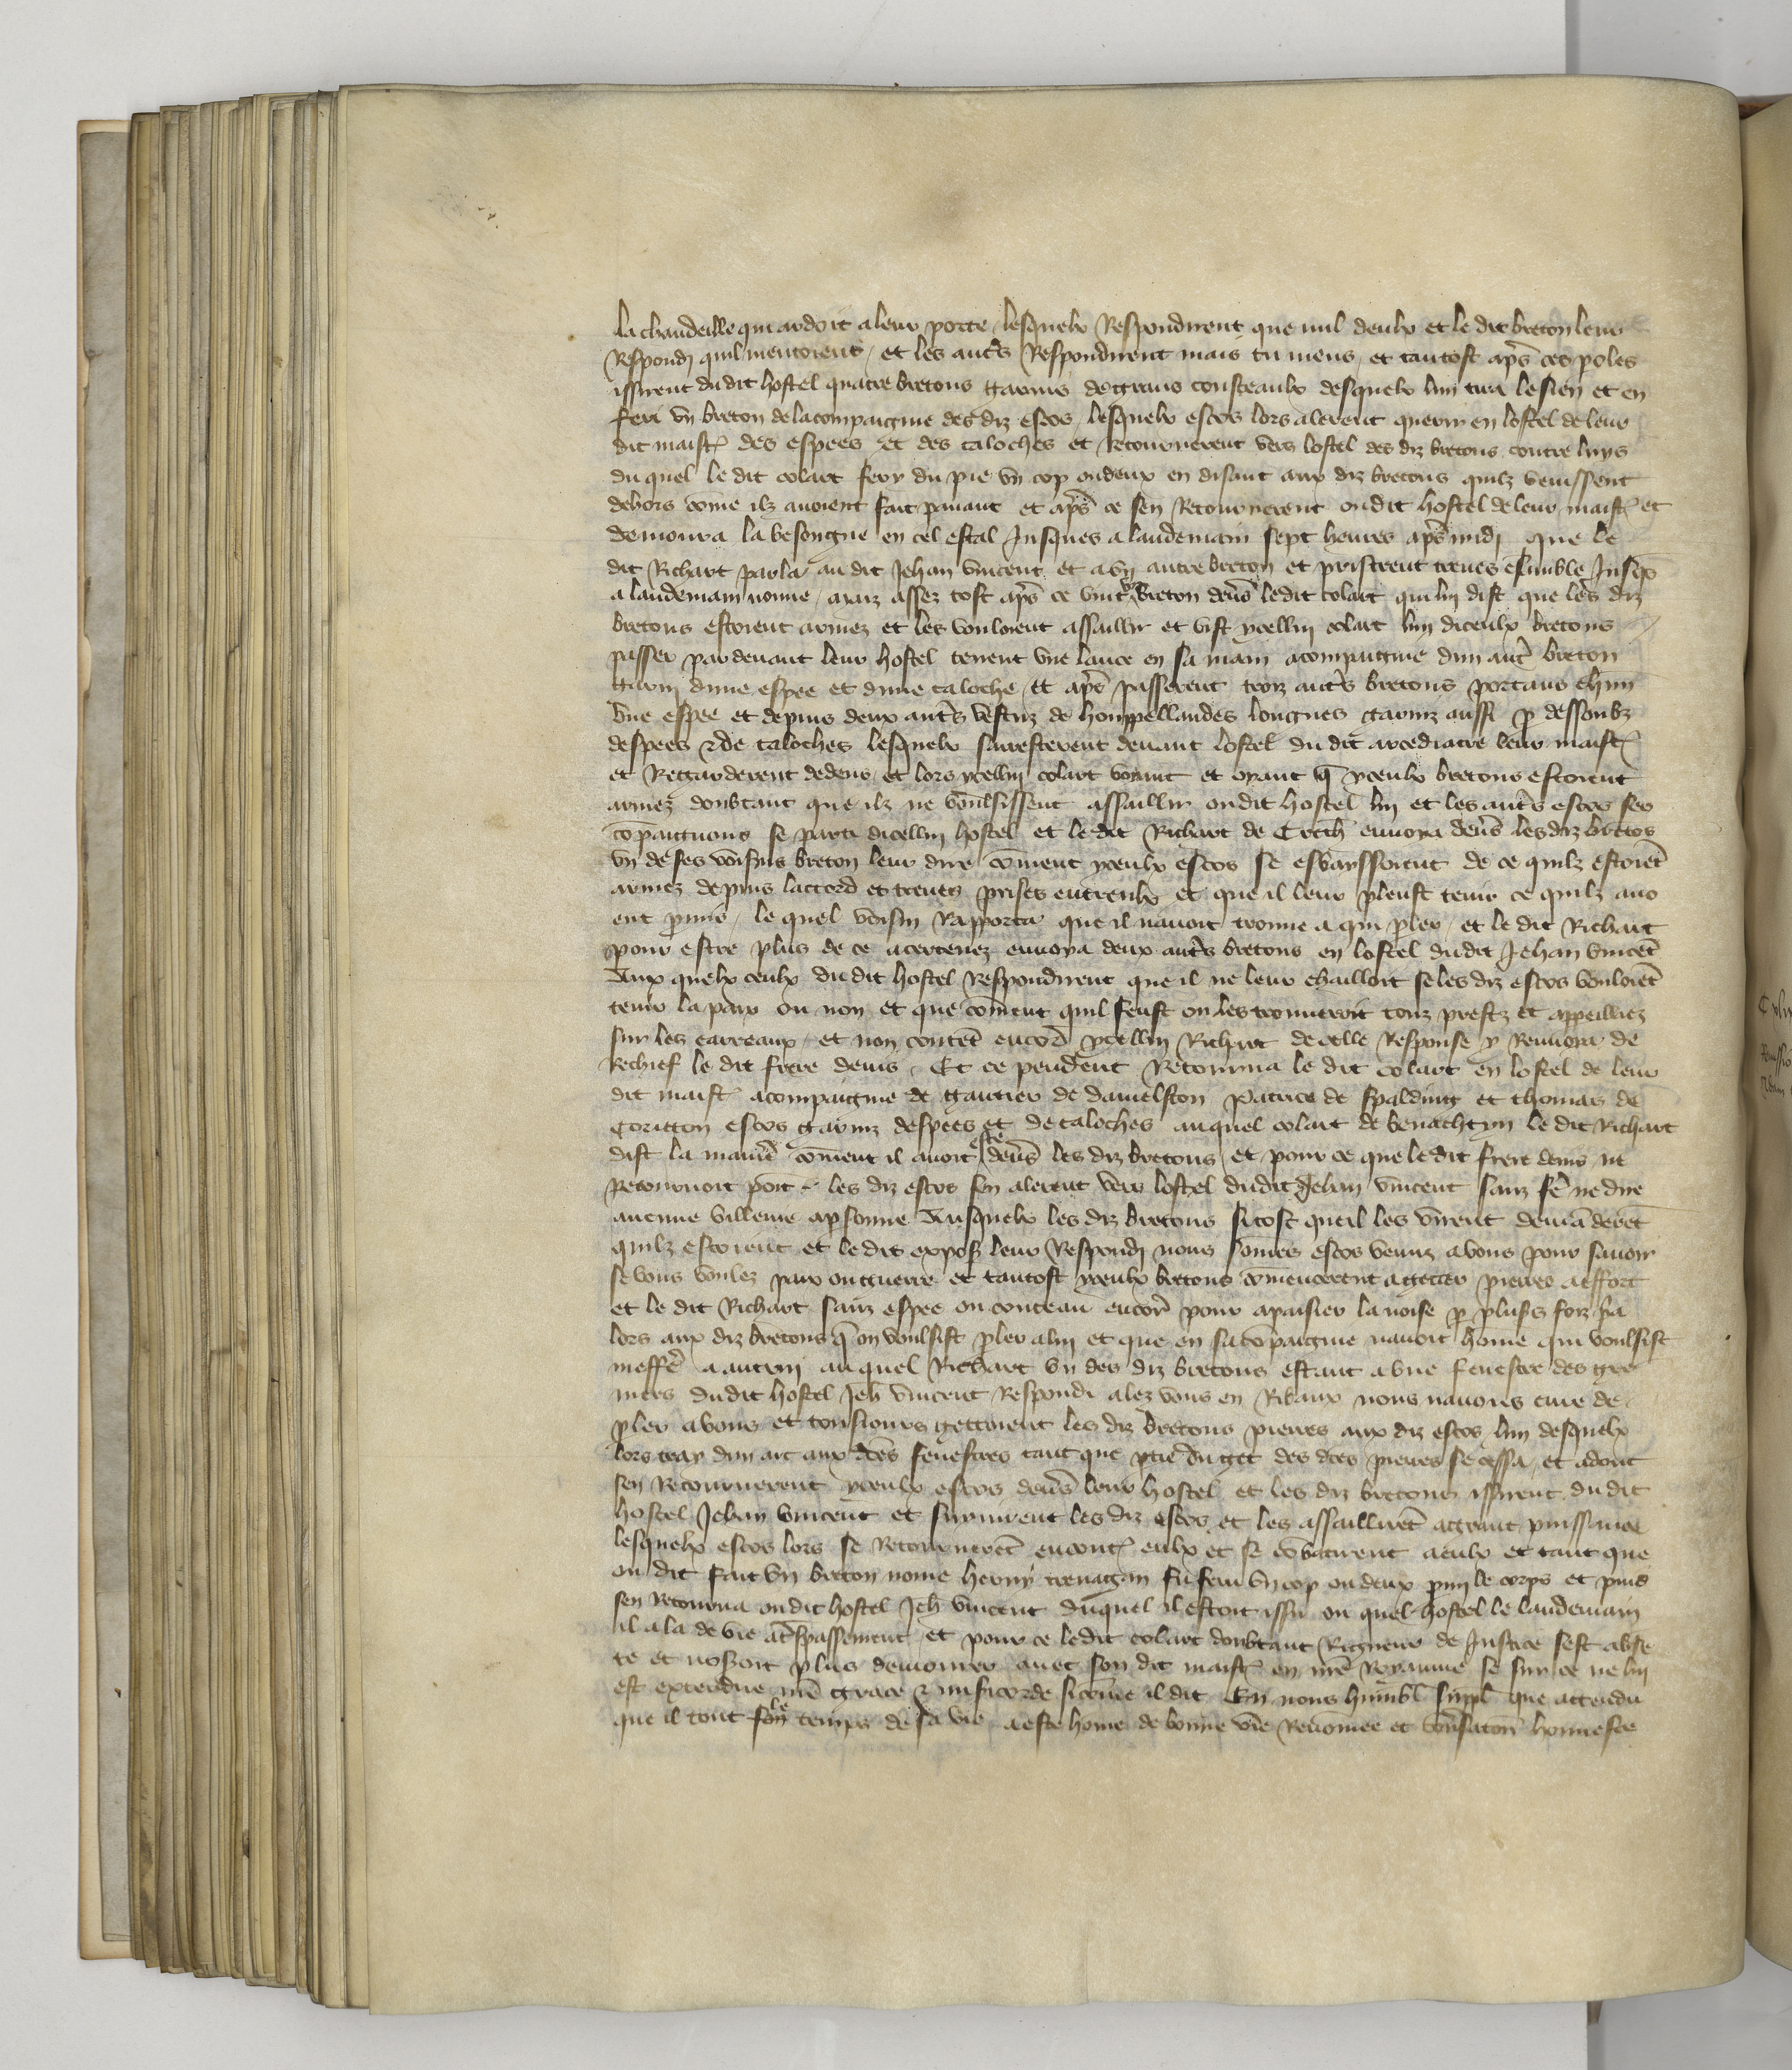 la chandeille qui ardoit a leur porte, lesquelx Respondirent que nul deulx et le dit breton leur
Respondi quil mentoient, et les autrs Respondirent mais tu mens, et tantost aprs ces poles
issirent du dit hostel quatre bretons garnis de grans cousteaulx desquelx lun tira le sien et en
feri un breton de la compaignie des diz escos, lesquelx escos lors alerent querir en lostel de leur
dit maistr des espees et des taloches et Retournerent vers lostel des diz bretons contre luys
du quel le dit colart fery du pie un cop ou deux en disant aux diz bretons quilz venissent
dehors come ilz avoient fait pavant et aprs ce sen Retournerent ou dit hostel de leur maistr et
demoura la besongne en cel estat Jusques a landemain sept heures aprs midi que le
dit Richart parla au dit Jehan vincent et a un autre breton et pristrent treues ensemble Jusqs
a landemain nonne, maiz assez tost aprs ce vint un breton devrs ledit colart qui li dist que les diz
bretons estoient armez et les vouloient assaillir et vist ycellui colart lun diceulx bretons
passer par devant leur hostel tenent une lance en sa main acompaignie dun autr breton
garni dune espee et dune taloche, et aprs passerent troiz autrs bretons portans chun
une espee et depuis deux autrs vestuz de houppellandes longues garniz aussi p dessoubz
despees & de taloches lesquelx sarresterent devant lostel du dit arcediacre leur maistr
et Regarderent dedens, et lors ycellui colart voiant et oyant q yceulx bretons estoient
armez doubtant que ilz ne voulsissent assaillir ou dit hostel lui et les autrs escos ses
copaignons se parti dicellui hostel et le dit Richart de envoya devrs les diz bretos
un de ses voisins breton leur dire coment yceulx escos se esbayssoient de ce quilz estoiet
armez depuis laccord et treues prises entreulx et que il leur pleust tenir ce quilz avo
ent pmis, le quel voisin Rapporta que il navoit trouve a qui pler, et le dit Richart
pour estre plus de ce acertenez envoya deux autrs bretons en lostel dudit Jehan vincet
Aux quelx ceulx du dit hostel Respondirent que il ne leur chailloit se les diz escos vouloiet
tenir la paix ou non et que coment quil feust on les trouveroit touz prestz et appeilliez
sur les carreaux, et non contet encor ycellui Richart de celle Response y Renvoia de
Rechief le dit frere denis, Et ce pendent Retourna le dit colart en lostel de leur
dit maistr acompaignie de gautier de danielston Patrice de spalding et thomas de
Coritton escos garniz despees et de taloches auquel colart de benachtyn le dit Richart
dist la manire coment il avoit este devrs les diz bretons et pour ce que le dit frere denis ne
Retournoit point les diz escos sen alerent vers lostel dudit Jehan vincent sanz fe ne dire
aucune villenie apsonne Ausquelx les diz bretons si tost que il les virent demaderet
quilz estoient et le dit expos leur Respondi nous somes escos venuz a vous pour savoir
se vous voulez paix ou guerre et tantost yceulx bretons comencerent a getter pierres a effort
et le dit Richart sanz espee ou couteau encor pour apaisier la noise p plusrs foiz pa
lors aux diz bretons q on voulsist pler a lui et que en sa compaignie navoit home qui voulsist
meffe a autrui au quel Richart un des diz bretons estant a une fenestre des gre
niers dudit hostel Jeh vincent Respondi alez vous en Ribaux nous navons cure de
pler a vous et tousiours gettoient les diz bretons pierres aux diz escos, lun desquelx
lors tray dun arc aux dces fenestres tant que ptie du get des dces pierres se cessa, et adont
sen Retournerent yceulx escos devrs leur hostel et les diz bretons issirent du dit
hostel Jehan vincent et survirent les diz escos et les assailliret a grant puissance
lesquelx escos lors se Retourneret encontr eulx et se cobatirent a eulx et tant que
ou dit fait un breton nome heruy fu feru un cop ou deux pmi le corps et puis
sen Retourna ou dit hostel Jeh vincent duquel il estoit issu ou quel hostel le landemain
il ala de vie a trspassement, et pour ce le dit colart doubtant Rigueur de Justice sest absen
te et nosoit plus demourer avec son dit maistr en nre Royaume se sur ce ne lui
est extendue nre grace & misicorde sicome il dit En nous humbl suppl que attendu
que il tout le temps de sa vie a este home de bonne vie Renomee et convsation honneste